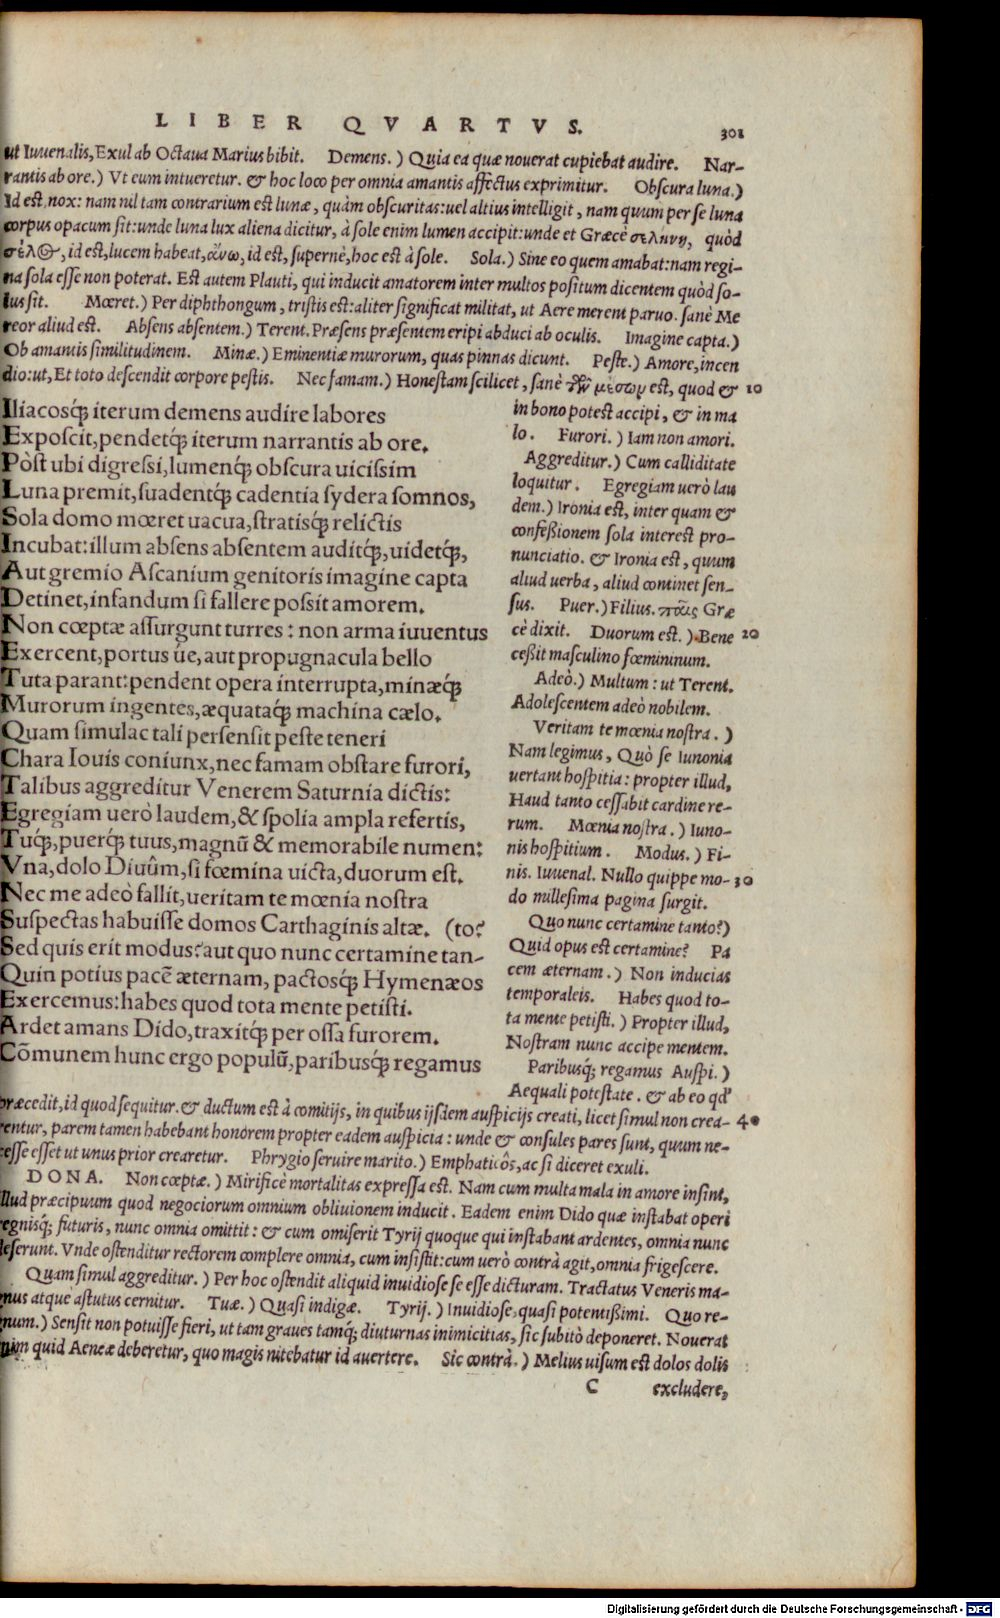 LIBER QVARTVS. 301
ut Iuuenalis, Exul ab Octaua Marius bibit. Demens.) Quia ea quæ nouerat cupiebat audire. Nar-
rantis ab ore.) Vt eum intueretur. & hoc loco per omnia amantis affectus exprimitur. Obscura luna.)
Id est, nox: nam nil tam contrarium est lunæ, quàm obscuritas: uel altius intelligit, nam quum per se luna
corpus opacum sit: unde luna lux aliena dicitur, à sole enim lumen accipit: unde et Græcè σελήνη, quòd
σέλας, id est, lucem habeat, ἄνω, id est, supernè, hoc est à sole. Sola.) Sine eo quem amabat: nam regi-
na sola esse non poterat. Est autem Plauti, qui inducit amatorem inter multos positum dicentem quòd so-
lus sit. Mœret.) Per diphthongum, tristis est: aliter significat militat, ut Aere merent paruo. sanè Me
reor aliud est. Absens absentem.) Terent. Præsens præsentem eripi abduci ab oculis. Imagine capta.)
Ob amantis similitudinem. Minæ.) Eminentiæ murorum, quas pinnas dicunt. Peste.) Amore, incen
dio: ut, Et toto descendit corpore pestis. Nec famam.) Honestam scilicet, sanè τῶν μέσων est, quod & 10
Iliacosq́; iterum demens audire labores
Exposcit, pendetq́; iterum narrantis ab ore.
Pòst ubi digressi, lumenq́; obscura uicissim
Luna premit, suadentq́; cadentia sydera somnos,
Sola domo mœret uacua, stratisq́; relictis
Incubat: illum absens absentem auditq́;, uidetq́;,
Aut gremio Ascanium genitoris imagine capta
Detinet, infandum si fallere possit amorem.
Non cœptæ assurgunt turres: non arma iuuentus
Exercent, portus úe, aut propugnacula bello
Tuta parant: pendent opera interrupta, minæq́;
Murorum ingentes, æquataq́; machina cælo.
Quam simulac tali persensit peste teneri
Chara Iouis coniunx, nec famam obstare furori,
Talibus aggreditur Venerem Saturnia dictis:
Egregiam uerò laudem, & spolia ampla refertis,
Tuq́;, puerq́; tuus, magnū & memorabile numen:
Vna, dolo Diuûm, si fœmina uicta, duorum est.
Nec me adeò fallit, ueritam te mœnia nostra
Suspectas habuisse domos Carthaginis altæ. (to?
Sed quis erit modus? aut quo nunc certamine tan-
Quin potius pacē æternam, pactosq́; Hymenæos
Exercemus: habes quod tota mente petisti.
Ardet amans Dido, traxitq́; per ossa furorem.
Cōmunem hunc ergo populū, paribusq́; regamus
in bono potest accipi, & in ma
lo. Furori.) Iam non amori.
Aggreditur.) Cum calliditate
loquitur. Egregiam uerò lau
dem.) Ironia est, inter quam &
confeßionem sola interest pro-
nunciatio. & Ironia est, quum
aliud uerba, aliud continet sen-
sus. Puer.) Filius. παῖς Græ
cè dixit. Duorum est.) Bene 20
ceßit masculino fœmininum.
Adeò.) Multum: ut Terent.
Adolescentem adeò nobilem.
Veritam te mœnia nostra.)
Nam legimus, Quò se Iunonia
uertant hospitia: propter illud,
Haud tanto cessabit cardine re-
rum. Mœnia nostra.) Iuno-
nis hospitium. Modus.) Fi-
nis. Iuuenal. Nullo quippe mo- 30
do millesima pagina surgit.
Quo nunc certamine tanto?)
Quid opus est certamine? Pa
cem æternam.) Non inducias
temporaleis. Habes quod to-
ta mente petisti.) Propter illud,
Nostram nunc accipe mentem.
Paribusq́; regamus Auspi.)
Aequali potestate. & ab eo qđ
præcedit, id quod sequitur. & ductum est à comitijs, in quibus ijsdem auspicijs creati, licet simul non crea- 40
rentur, parem tamen habebant honorem propter eadem auspicia: unde & consules pares sunt, quum ne-
cesse esset ut unus prior crearetur. Phrygio seruire marito.) Emphaticῶs, ac si diceret exuli.
DONA. Non cœptæ.) Mirificè mortalitas expressa est. Nam cum multa mala in amore insint,
illud præcipuum quod negociorum omnium obliuionem inducit. Eadem enim Dido quæ instabat operi
regnisq́; futuris, nunc omnia omittit: & cum omiserit Tyrij quoque qui instabant ardentes, omnia nunc
deserunt. Vnde ostenditur rectorem complere omnia, cum insistit: cum uerò contrà agit, omnia frigescere.
Quam simul aggreditur.) Per hoc ostendit aliquid inuidiose se esse dicturam. Tractatus Veneris ma-
nus atque astutus cernitur. Tuæ.) Quasi indigæ. Tyrij.) Inuidiose, quasi potentißimi. Quo re-
gnum.) Sensit non potuisse fieri, ut tam graues tamq́; diuturnas inimicitias, sic subitò deponeret. Nouerat
enim quid Aeneæ deberetur, quo magis nitebatur id auertere. Sic contrà.) Melius uisum est dolos dolis
C excludere,
Digitalisierung gefördert durch die Deutsche Forschungsgemeinschaft - DFG